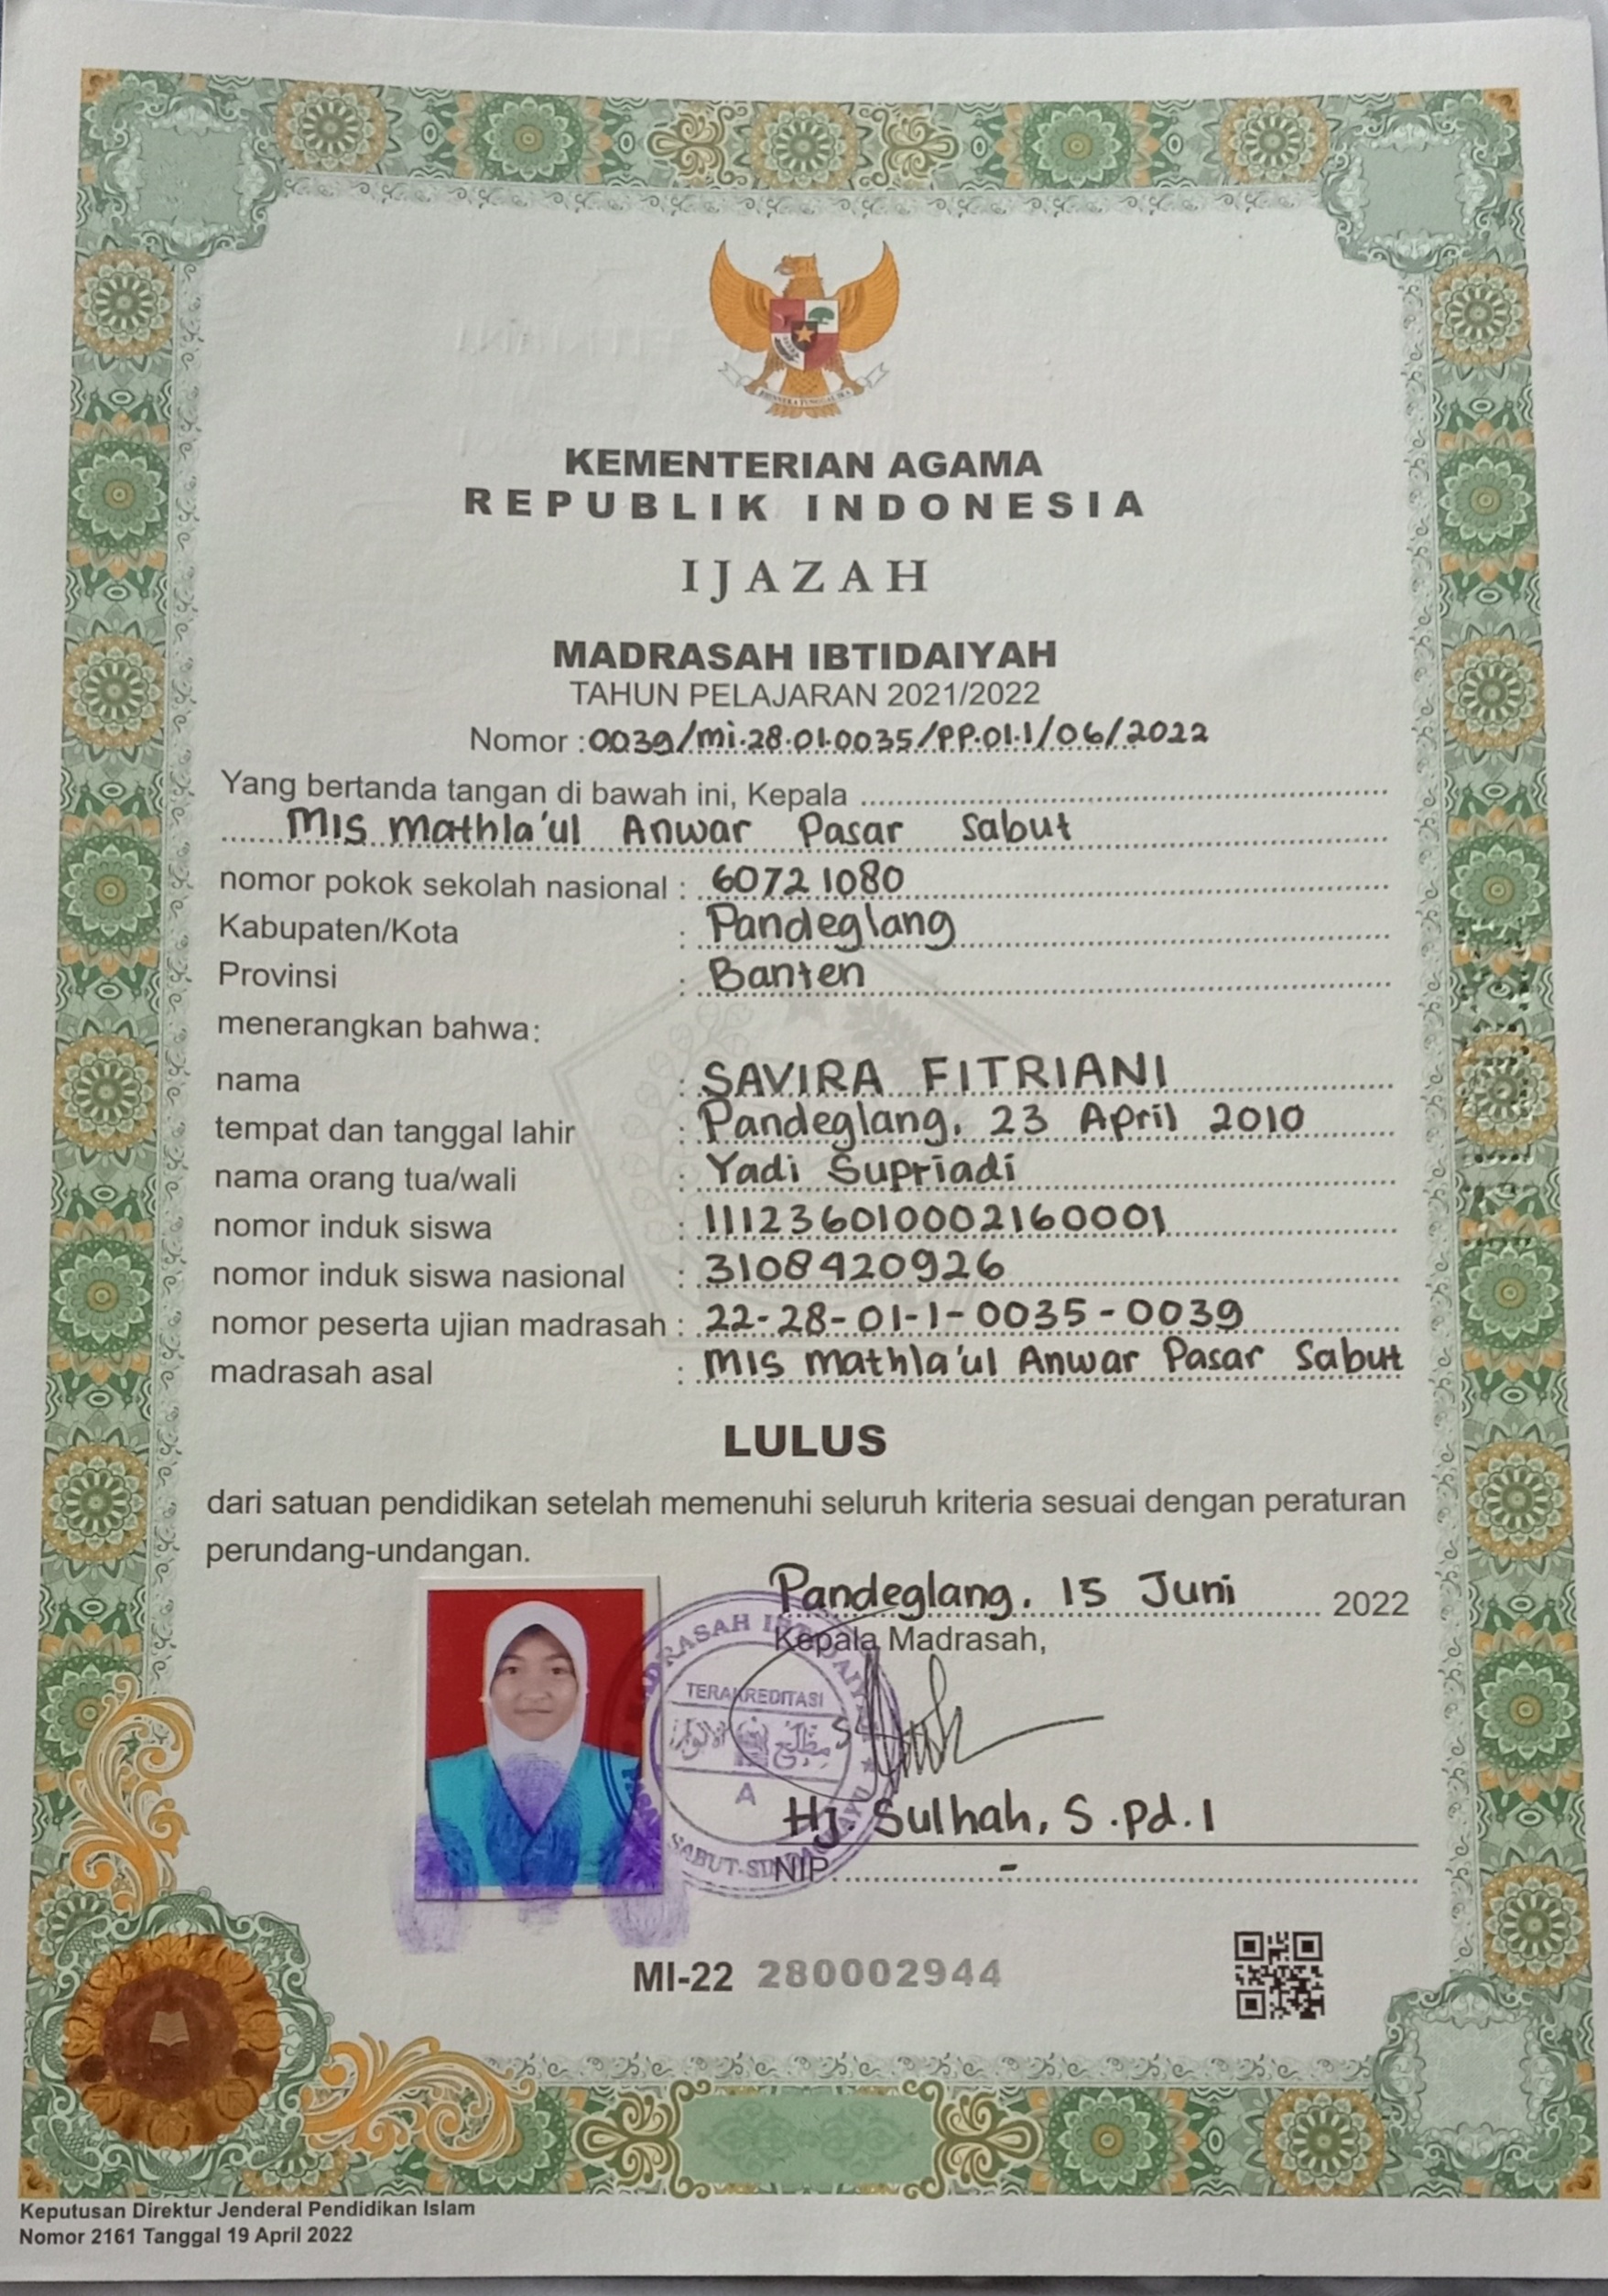 KEMENTERIAN AGAMA
REPUBLIK INDONESIA
IJAZAH
MADRASAH IBTIDAIYAH
TAHUN PELAJARAN 2021/2022
Nomor : 0039/Mi.28.01.0035/PP.01.1/06/2022
Yang bertanda tangan di bawah ini, Kepala
MIS Mathla'ul Anwar Pasar Sabut
nomor pokok sekolah nasional : 60721080
Kabupaten/Kota : Pandeglang
Provinsi : Banten
menerangkan bahwa:
nama : SAVIRA FITRIANI
tempat dan tanggal lahir : Pandeglang, 23 April 2010
nama orang tua/wali : Yadi Supriadi
nomor induk siswa : 111236010002160001
nomor induk siswa nasional : 3108420926
nomor peserta ujian madrasah : 22-28-01-1-0035-0039
madrasah asal : MIS Mathla'ul Anwar Pasar Sabut
LULUS
dari satuan pendidikan setelah memenuhi seluruh kriteria sesuai dengan peraturan
perundang-undangan.
Pandeglang, 15 Juni 2022
Kepala Madrasah,
TERAKREDITASI
A
Hj. Sulhah, S.Pd.I
NIP. -
MI-22 280002944
Keputusan Direktur Jenderal Pendidikan Islam
Nomor 2161 Tanggal 19 April 2022